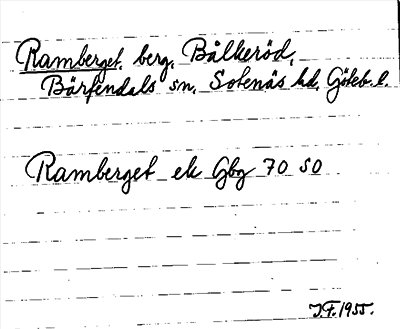 Ramberget, berg, Bålkeröd,
Bärfendals sn, Sotenäs hd, Göteb. l.
Ramberget ek Gbg 70 SO
J.F. 1955.